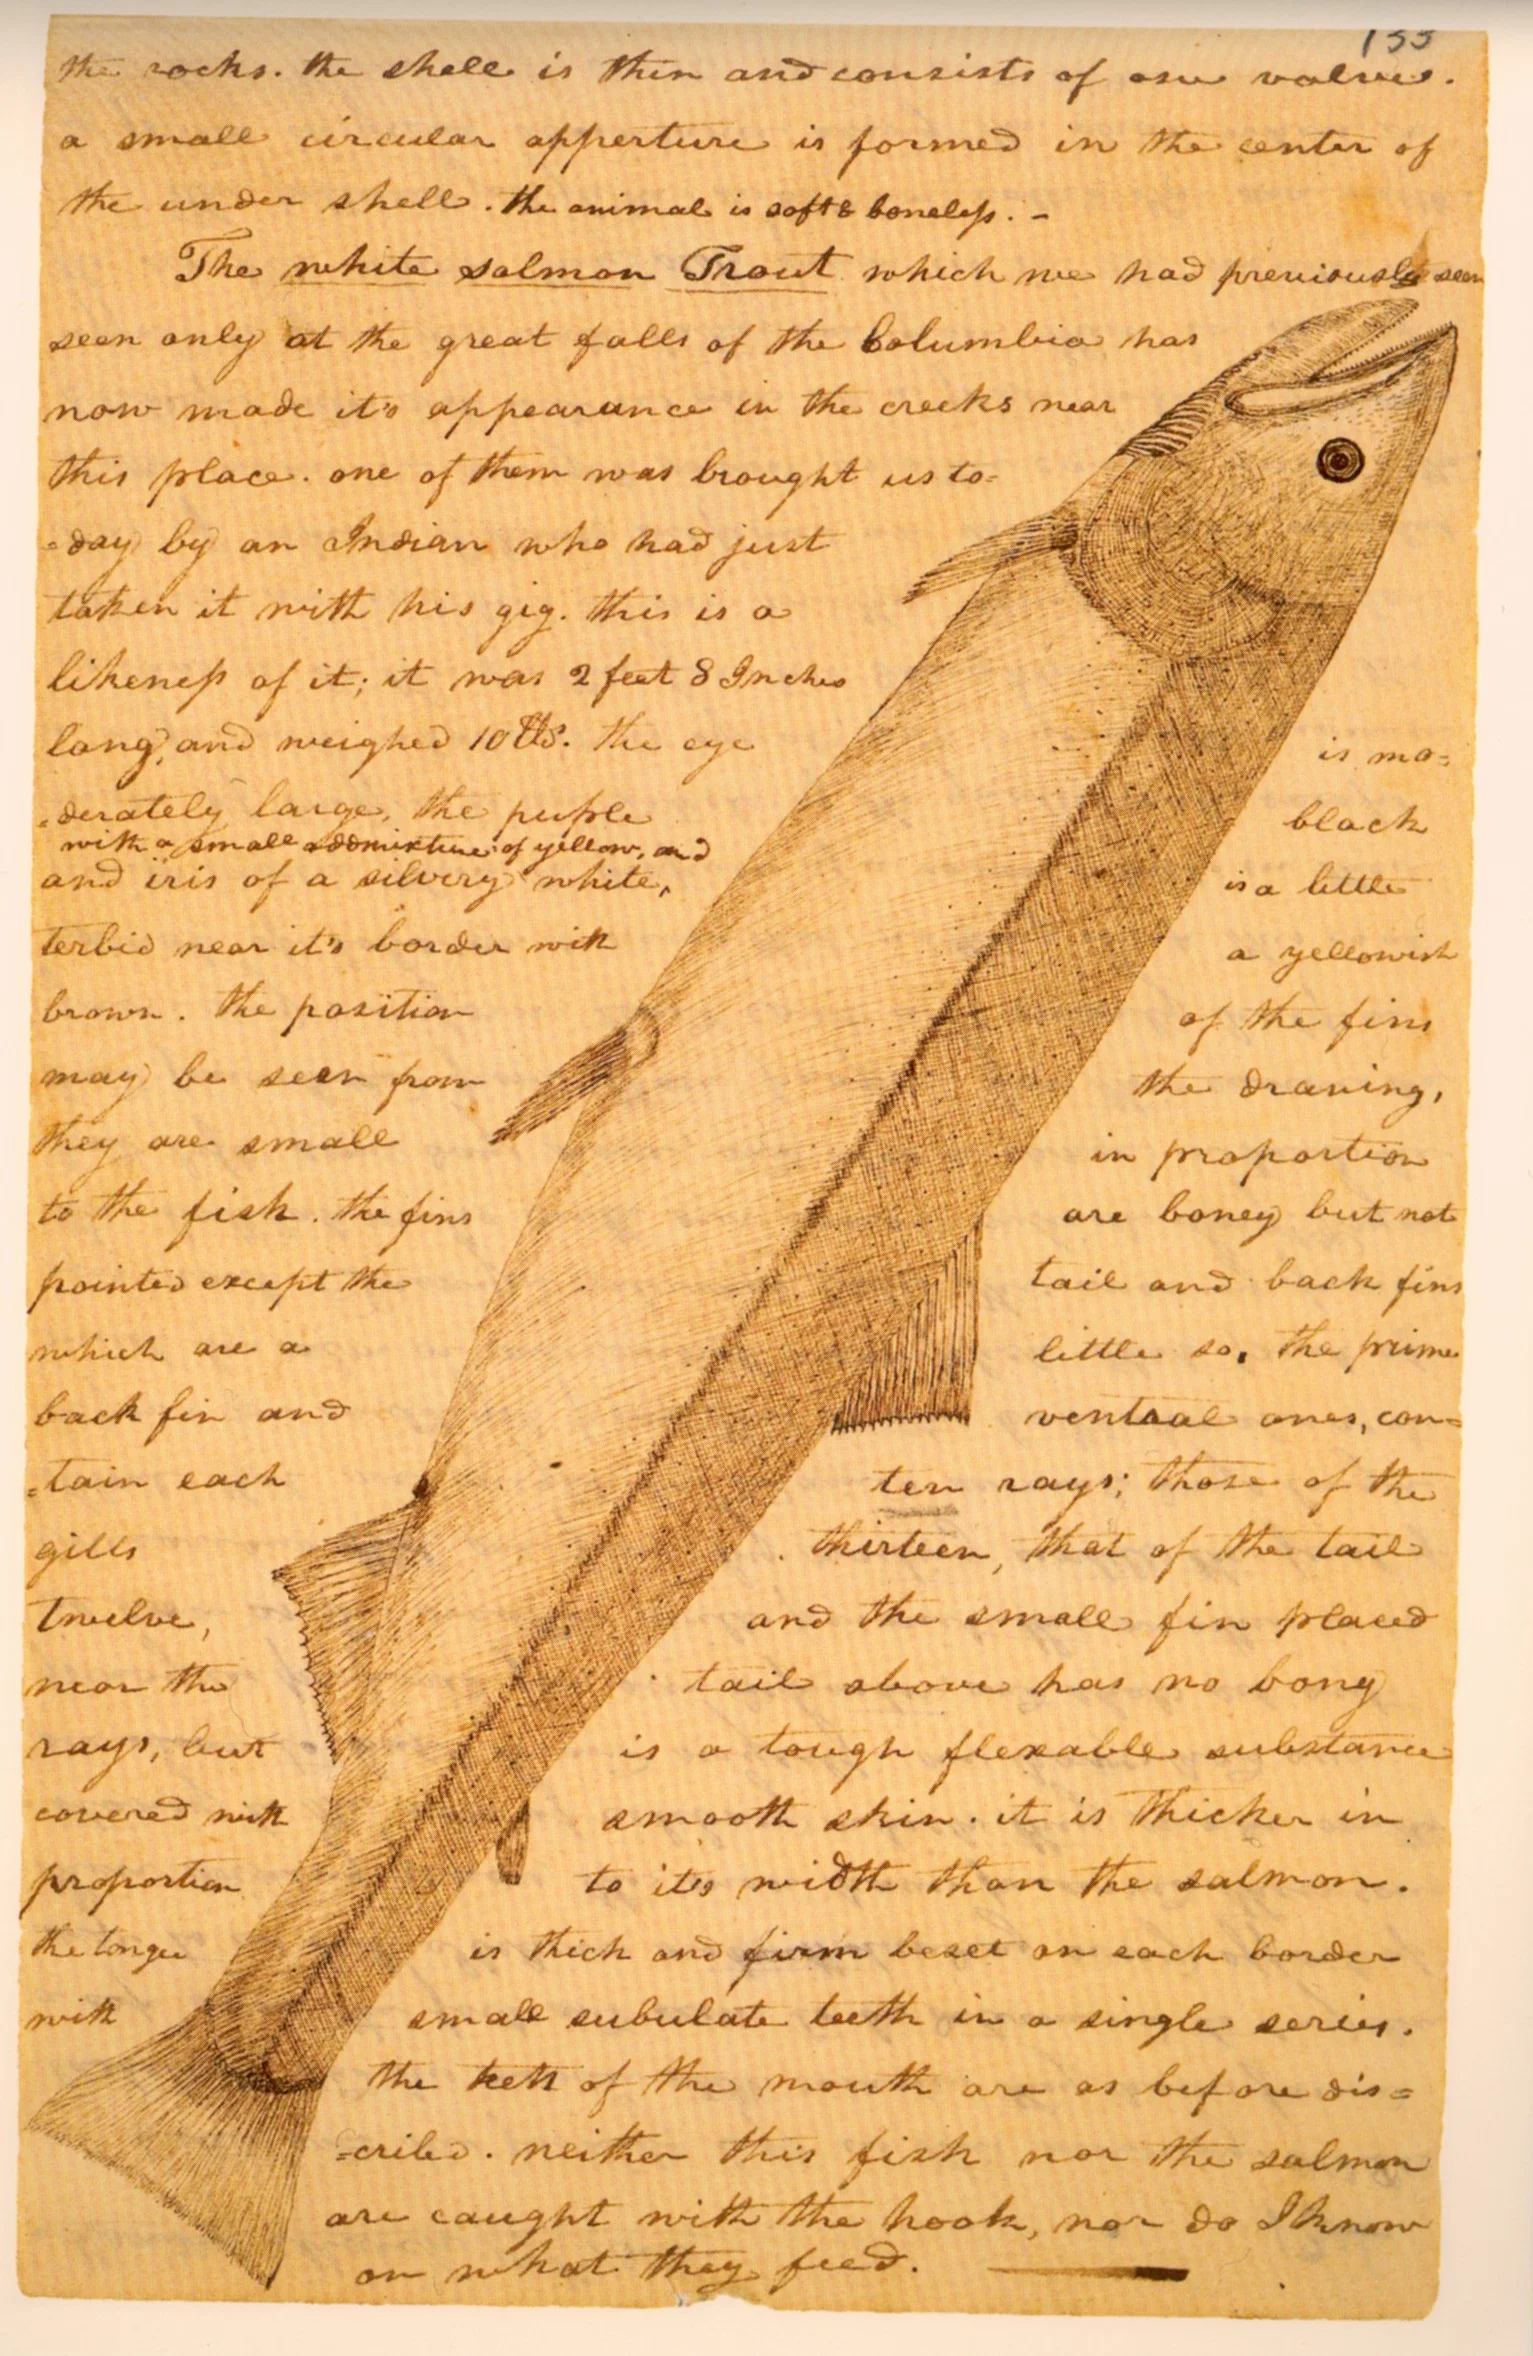 133
the rocks. the shell is thin and consists of one valve.
a small circular apperture is formed in the center of
the under shell. the animal is soft & boneless. -
The white salmon Trout which we had previously seen
seen only at the great falls of the Columbia has
now made it's appearance in the creeks near
this place. one of them was brought us to=
=day by an Indian who had just
taken it with his gig. this is a
likeness of it; it was 2 feet 8 Inches
long, and weighed 10 lbs. the eye is mo=
=derately large, the puple black
with a small addmixture of yellow, and
and iris of a silvery white, is a little
terbid near it's border with a yellowish
brown. the position of the fins
may be seen from the drawing,
they are small in proportion
to the fish. the fins are boney but not
pointed except the tail and back fins
which are a little so. the prime
back fin and ventral ones, con=
=tain each ten rays; those of the
gills thirteen, that of the tail
twelve, and the small fin placed
near the tail above has no bony
rays, but is a tough flexable substance
covered with smooth skin. it is thicker in
proportion to it's width than the salmon.
the tongue is thick and firm beset on each border
with small subulate teeth in a single series.
the teeth of the mouth are as before dis=
=cribed. neither this fish nor the salmon
are caught with the hook, nor do I know
on what they feed.